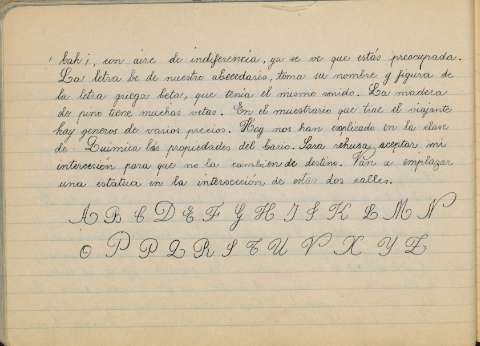 ¡bah!, con aire de indiferencia, ya se ve que estás preocupada.
La letra be de nuestro abecedario, toma su nombre y figura de
la letra griega beta, que tenía el mismo sonido. La madera
de pino tiene muchas vetas. En el muestrario que trae el viajante
hay géneros de varios precios. Hoy nos han explicado en la clase
de Química las propiedades del bario. Sara rehusa aceptar mi
intercesión para que no la cambien de destino. Van a emplazar
una estatua en la intersección de estas dos calles.
A B C D E F G H I J K L M N
O P P Q R S T U V X Y Z